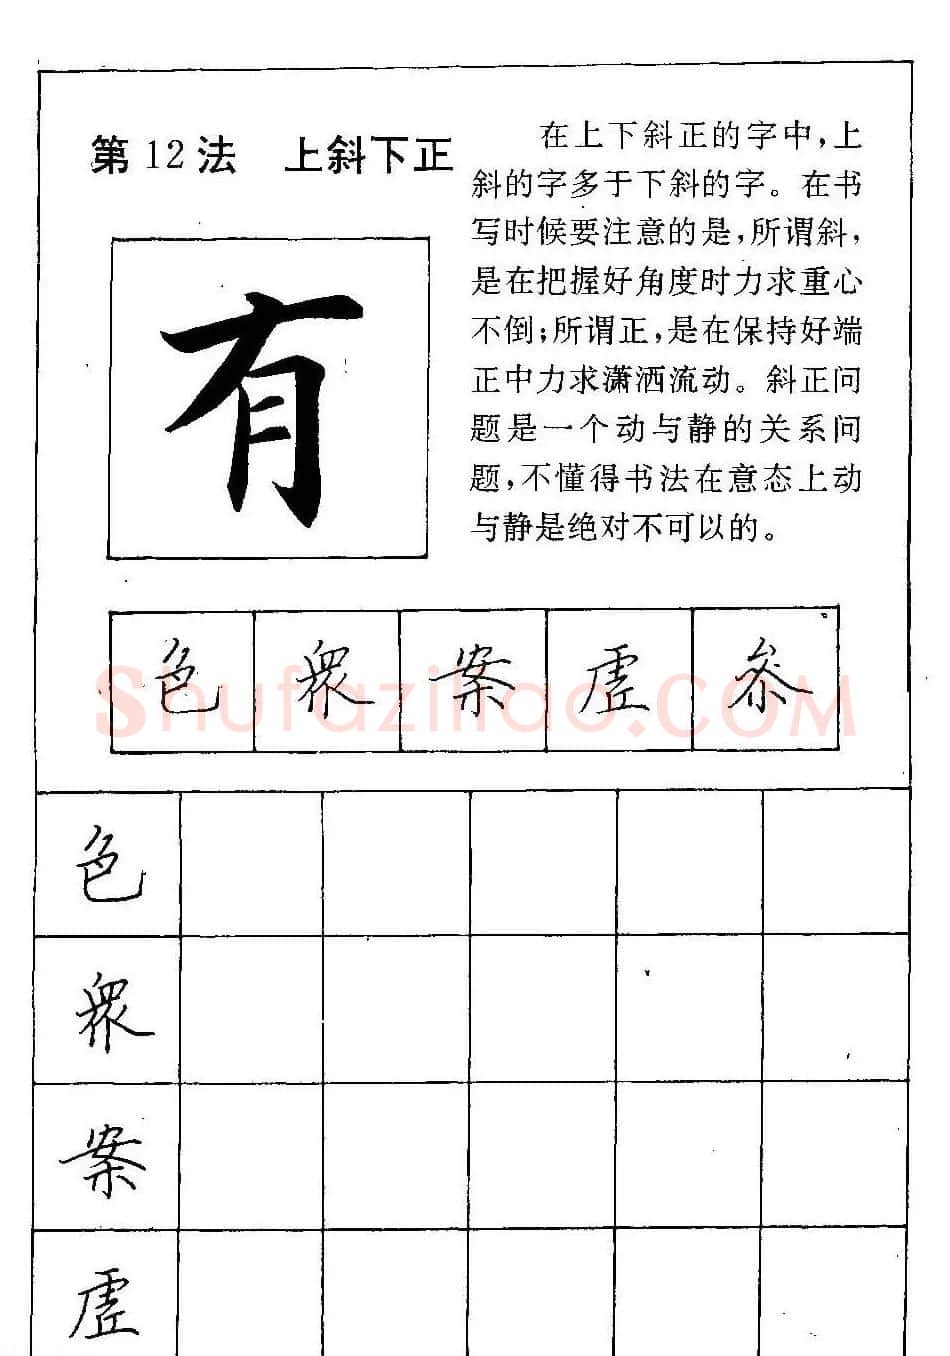 第12法 上斜下正
在上下斜正的字中,上
斜的字多于下斜的字。在书
写时候要注意的是,所谓斜,
是在把握好角度时力求重心
不倒;所谓正,是在保持好端
正中力求潇洒流动。斜正问
题是一个动与静的关系问
题,不懂得书法在意态上动
与静是绝对不可以的。
有
色 衆 案 虚 参
Shufaziliao.COM
色
衆
案
虚